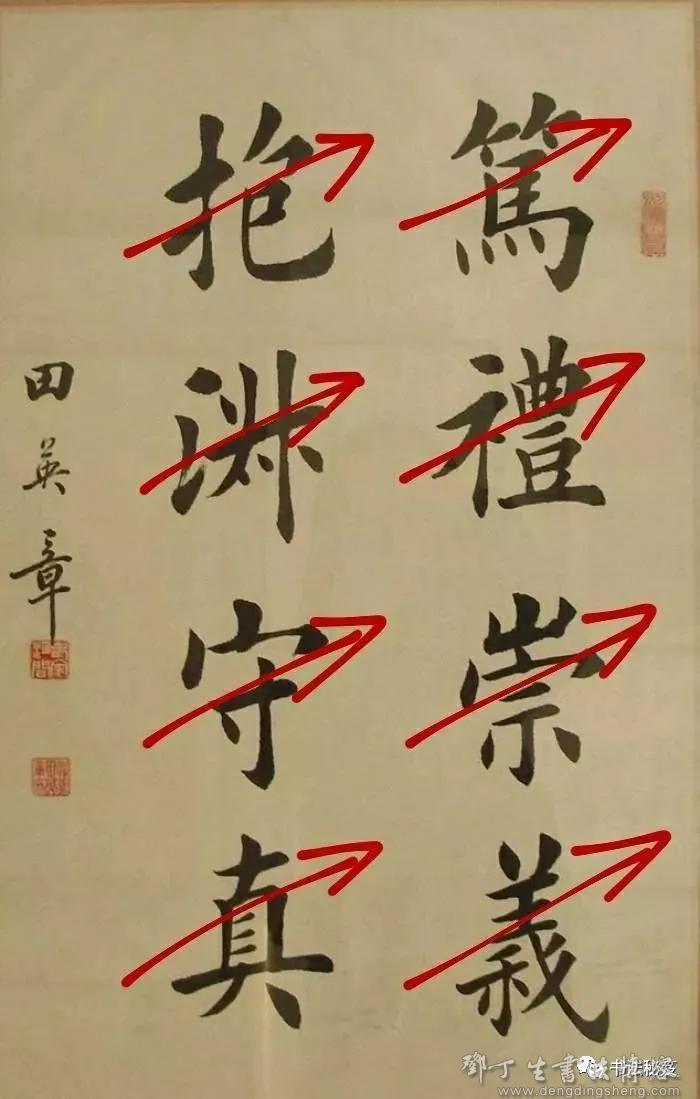 篤禮崇義
抱渊守真
田英章
书法秘笈
鄧丁生書法博客
www.dengdingsheng.com